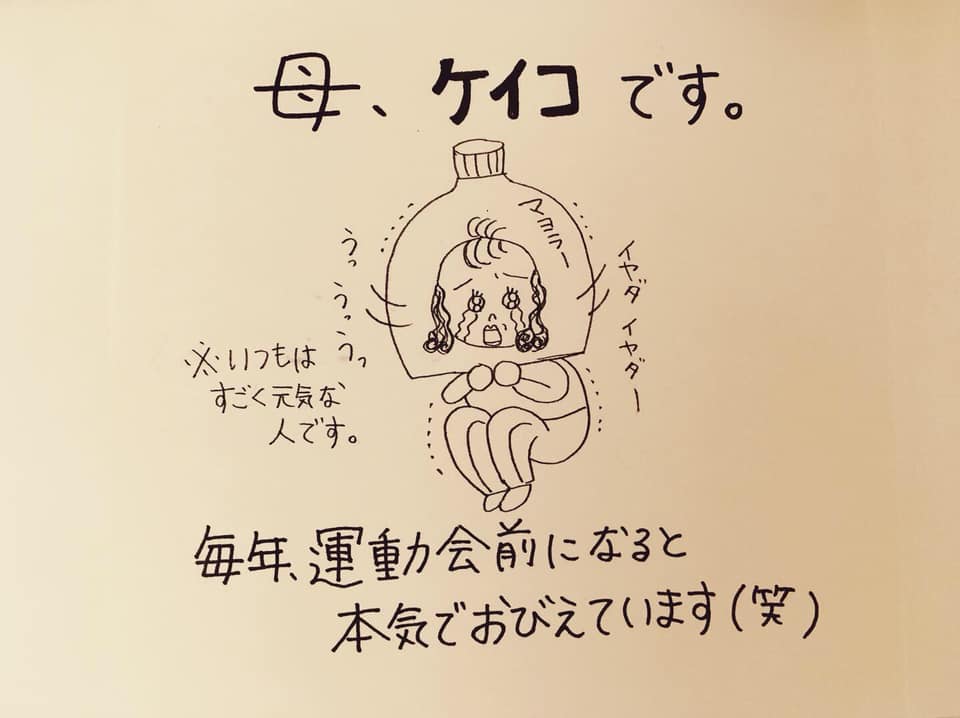 母、ケイコです。
マヨラー
うっ
うっうっ
イヤダ イヤダー
※いつもは
すごく元気な
人です。
毎年、運動会前になると
本気でおびえています(笑)